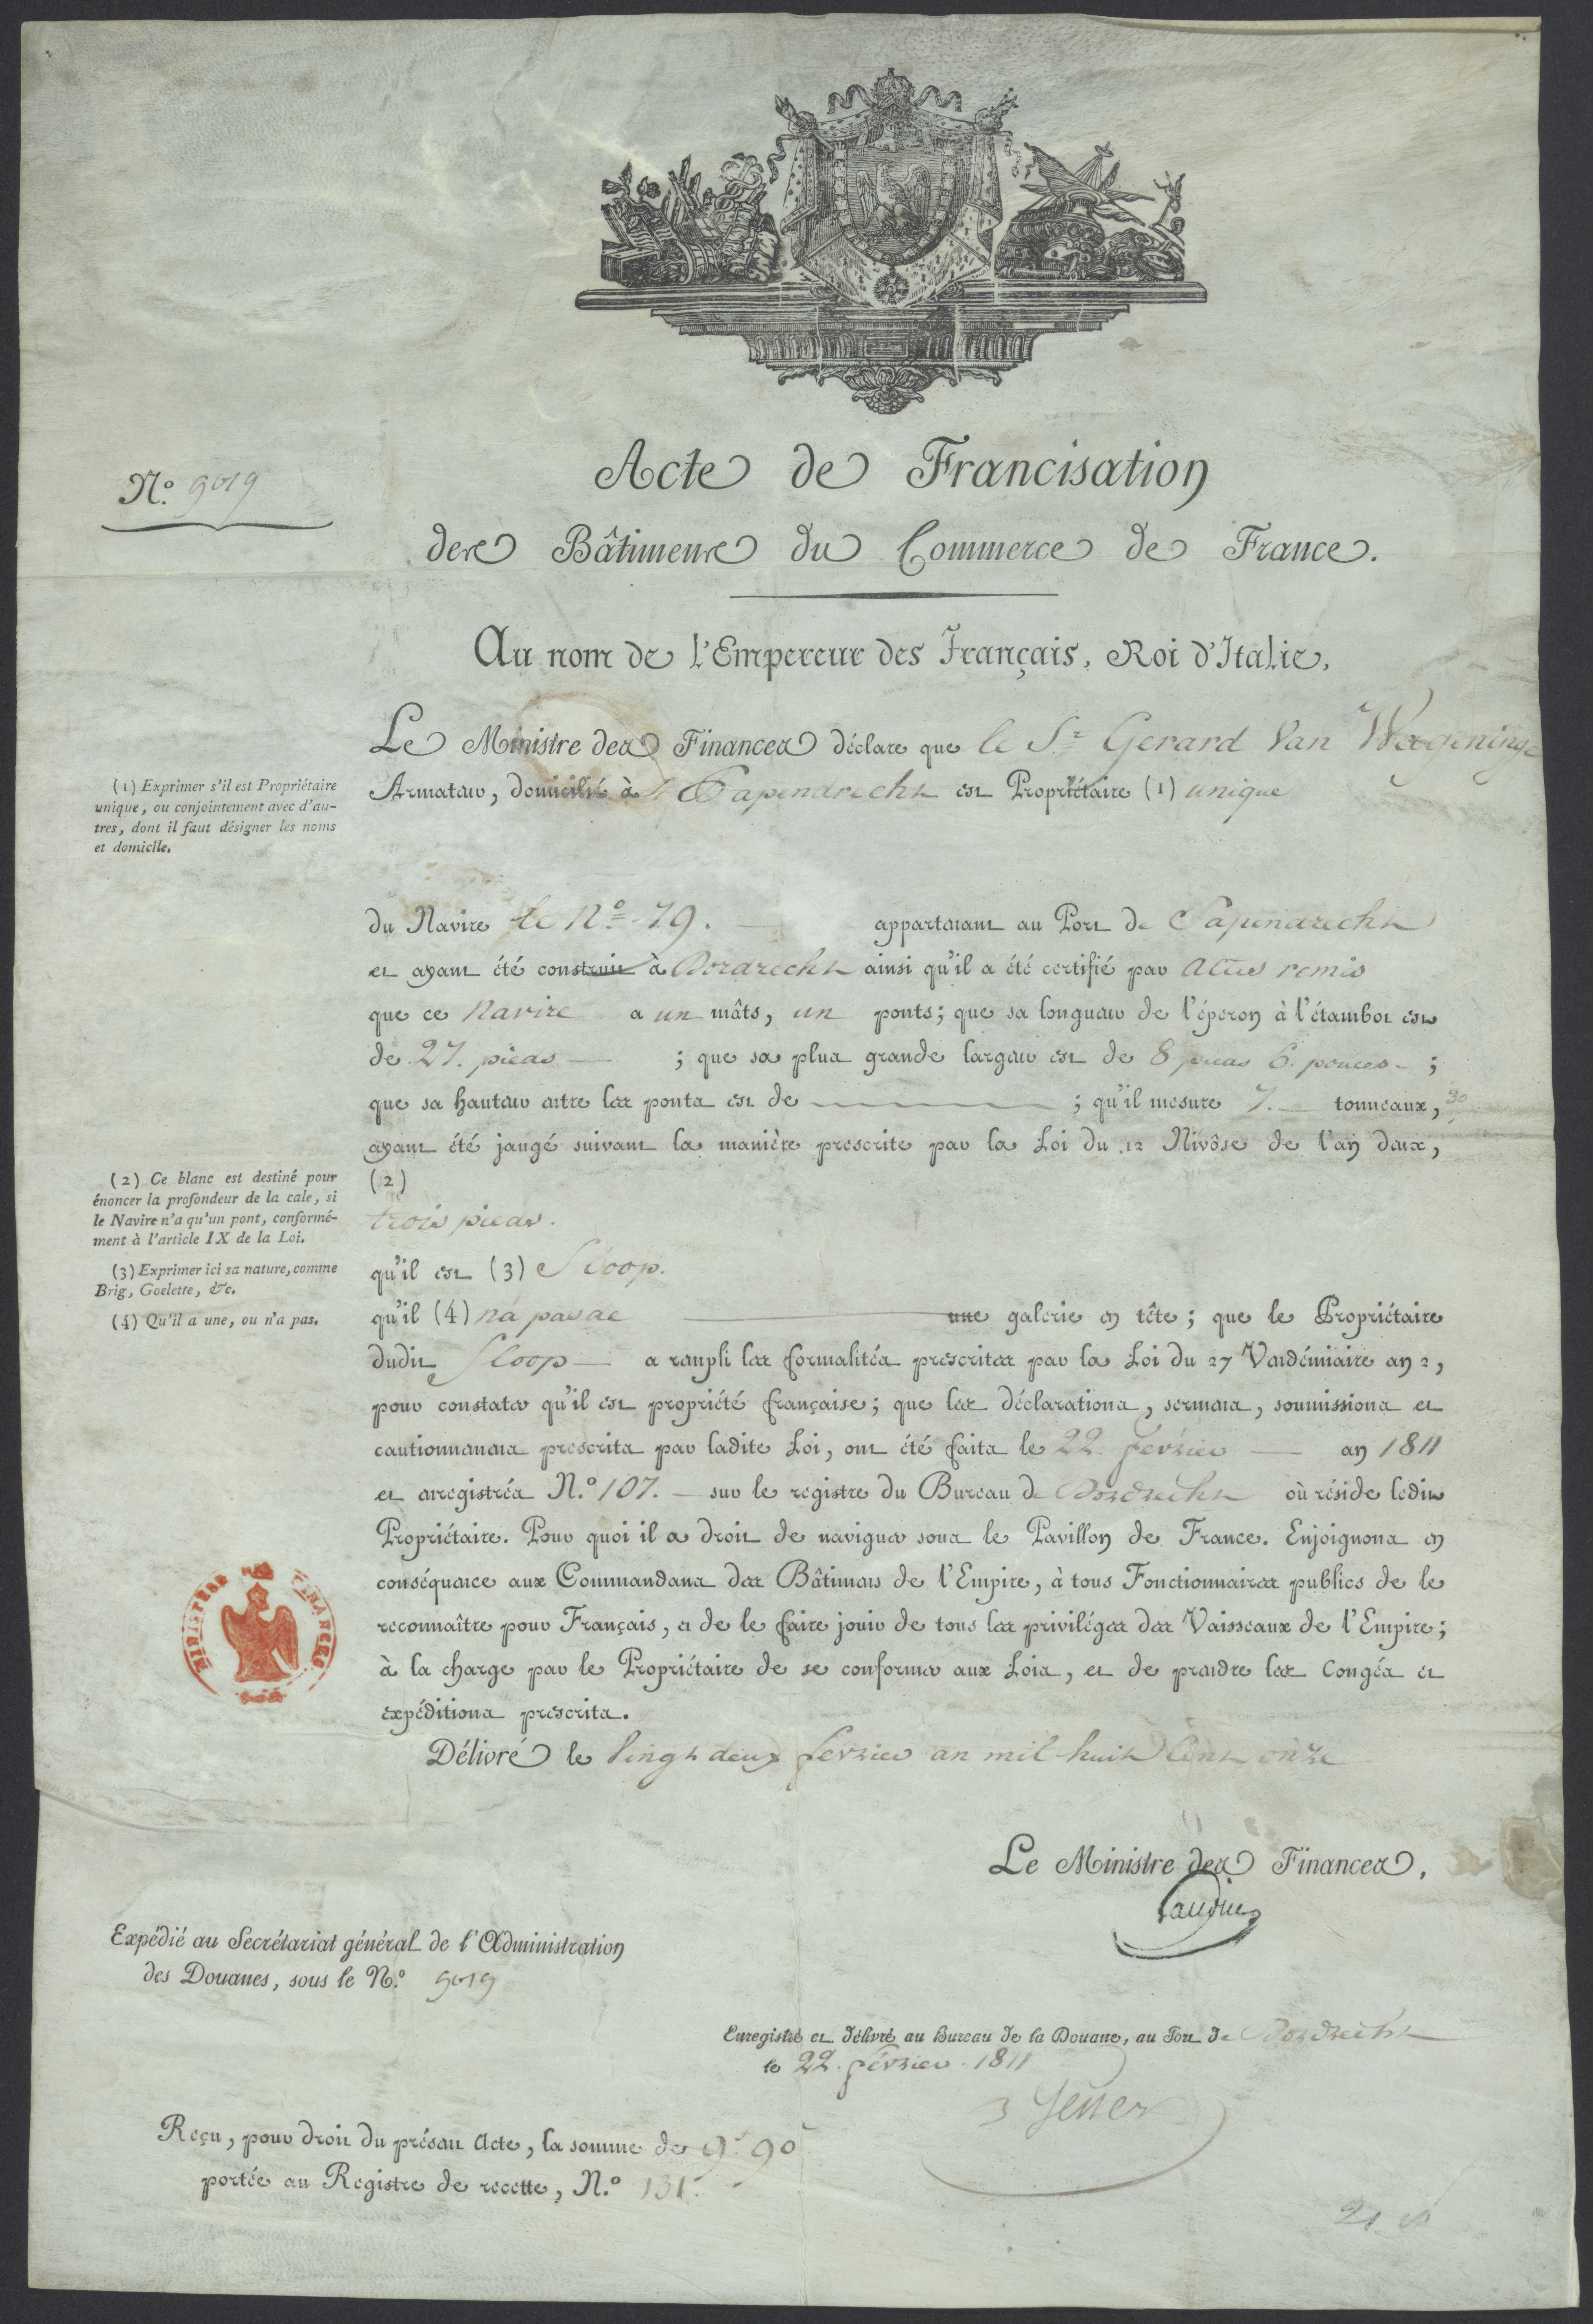 Acte de Francisation
N.º 9019
des Bâtimens du Commerce de France.
Au nom de l'Empereur des Français, Roi d'Italie,
Le Ministre des Finances déclare que le S.r Gerard Van Wageninge
Armateur, domicilié à Papendrecht est Propriétaire (1) unique
(1) Exprimer s'il est Propriétaire
unique, ou conjointement avec d'au-
tres, dont il faut désigner les noms
et domicile.
du Navire le Nº 79. appartenant au Port de Papendrecht
et ayant été construit à Dordrecht ainsi qu'il a été certifié par actes remis
que ce Navire a un mâts, un ponts; que sa longueur de l'éperon à l'étambot est
de 27. pieds ; que sa plus grande largeur est de 8 pieds 6. pouces ;
que sa hauteur entre les ponts est de ; qu'il mesure 7. tonneaux, 30
ayant été jaugé suivant la manière prescrite par la Loi du 12 Nivôse de l'an deux,
(2)
trois pieds.
(2) Ce blanc est destiné pour
énoncer la profondeur de la cale, si
le Navire n'a qu'un pont, conformé-
ment à l'article IX de la Loi.
(3) Exprimer ici sa nature, comme
Brig, Goelette, &c.
(4) Qu'il a une, ou n'a pas.
qu'il est (3) Sloop.
qu'il (4) n'a pas de une galerie en tête; que le Propriétaire
dudit Sloop a rempli les formalités prescrites par la Loi du 27 Vendémiaire an 2,
pour constater qu'il est propriété française; que les déclarations, sermens, soumissions et
cautionnemens prescrits par ladite Loi, ont été faits le 22 fevrier an 1811
et enregistrés N.º 107. sur le registre du Bureau de Dordrecht où réside ledit
Propriétaire. Pour quoi il a droit de naviguer sous le Pavillon de France. Enjoignons en
conséquence aux Commandans des Bâtimens de l'Empire, à tous Fonctionnaires publics de le
reconnaître pour Français, et de le faire jouir de tous les priviléges des Vaisseaux de l'Empire;
à la charge par le Propriétaire de se conformer aux Lois, et de prendre les Congés et
expéditions prescrits.
MINISTÈRE DES FINANCES
Délivré le Vingt deux fevrier an mil huit Cent onze
Le Ministre des Finances,
Gaudin
Expédié au Secrétariat général de l'Administration
des Douanes, sous le N.º 9019
Enregistré et délivré au Bureau de la Douane, au Port de Dordrecht
le 22. février 1811
Reçu, pour droit du présent Acte, la somme de 9.f 90
portée au Registre de recette, N.º 131.